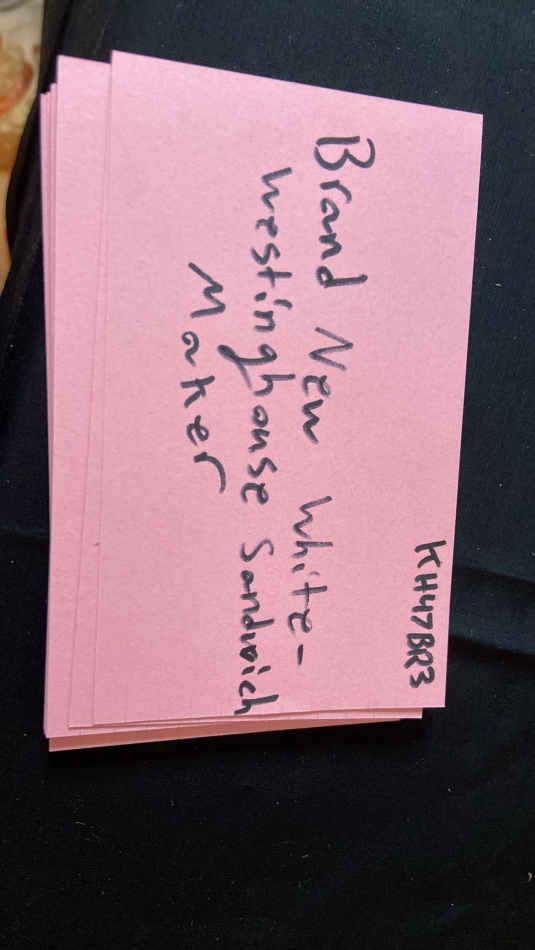 KH47BR3
Brand New White-
Westinghouse Sandwich
Maker